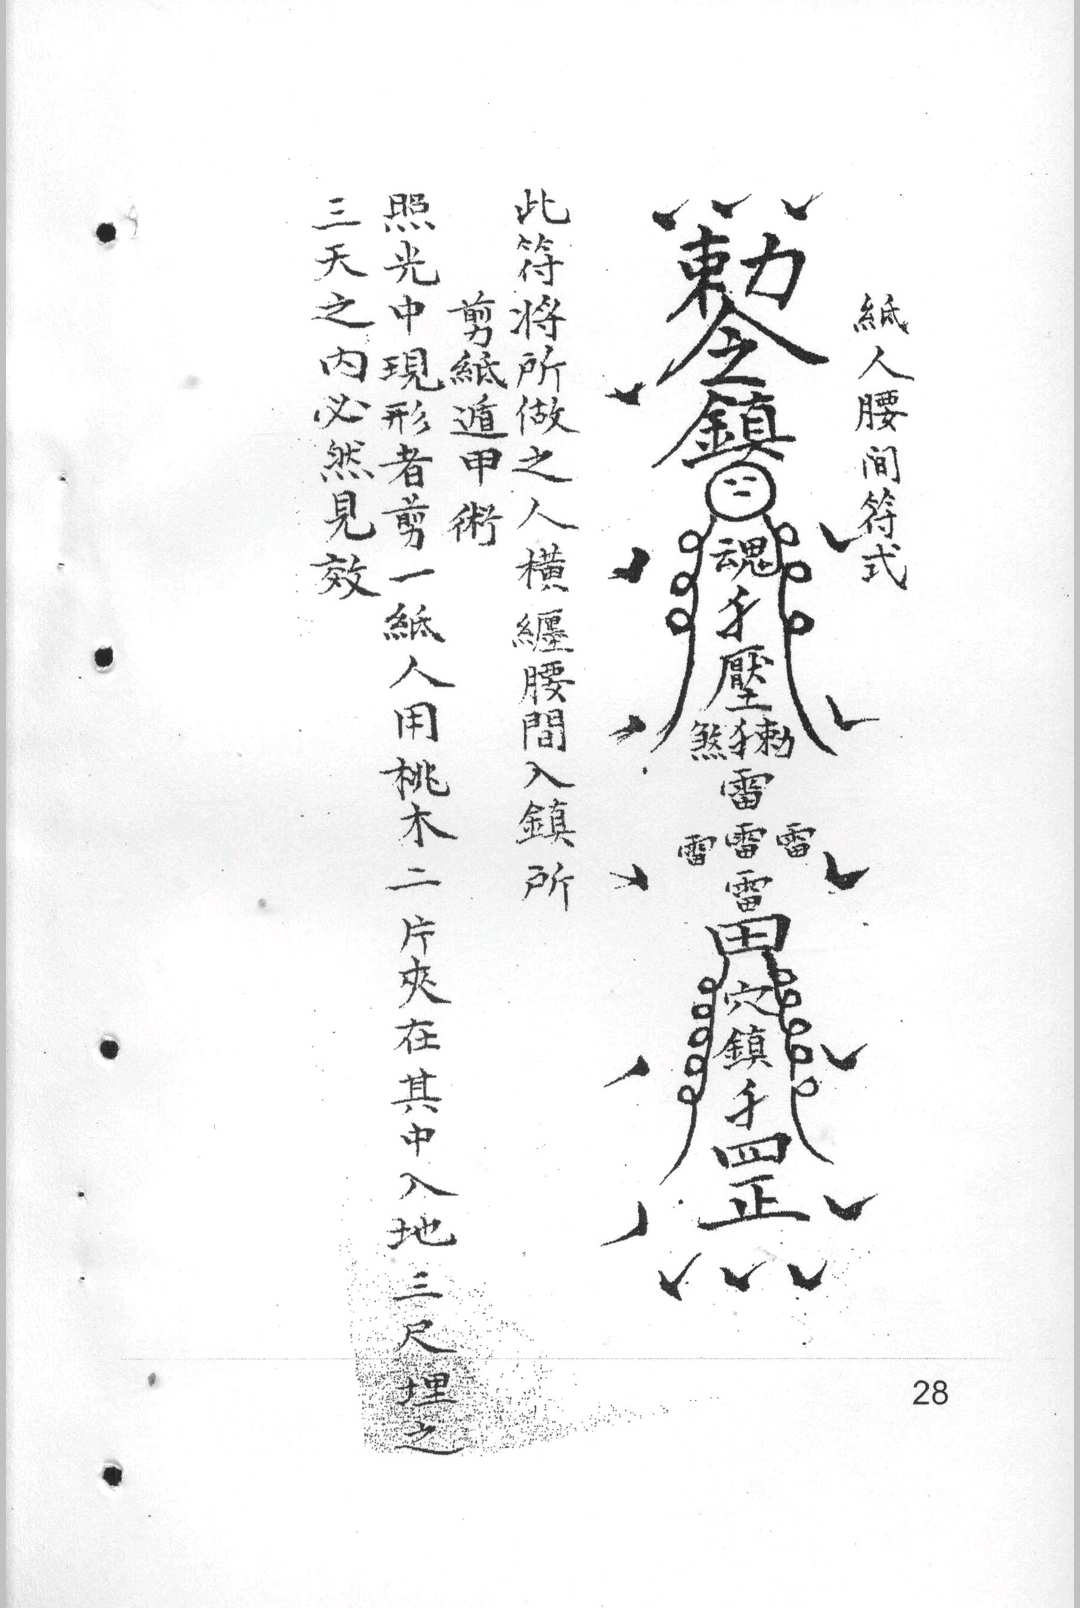 紙人腰间符式
勅令
鎮
魂
壓
煞 勅
雷
雷雷雷
雷
田
穴
鎮
四
正
此符將所做之人橫纒腰間入鎮所
剪紙遁甲術
照光中現形者剪一紙人用桃木二片夾在其中入地三尺埋之
三天之内必然見效
28